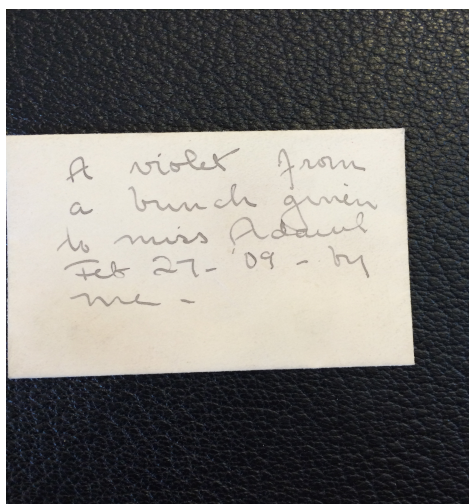 A violet from
a bunch given
to miss
Feb 27 - '09 - by
me -